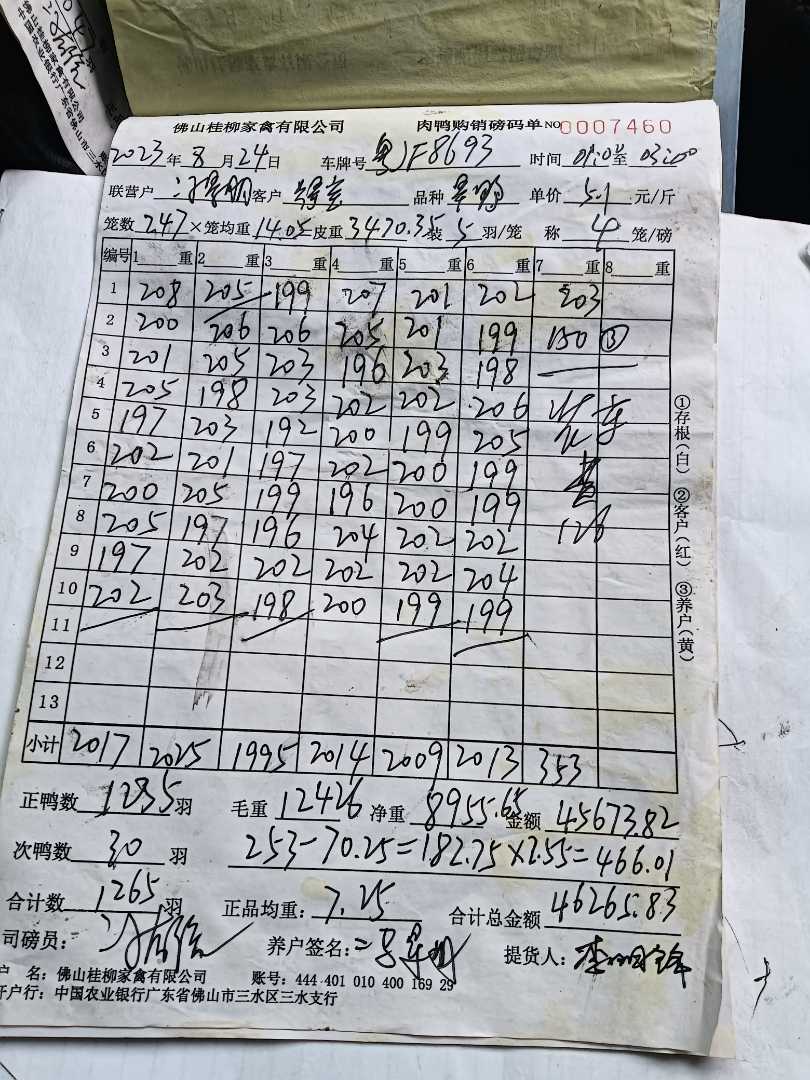 佛山桂柳家禽有限公司 肉鸭购销磅码单 NO 0007460
2023年8月24日 车牌号 粤JF8693 时间 01:00至03:00
联营户 客户 品种 单价 5.1 元/斤
笼数 247 ×笼均重 14.05 皮重 3470.35 装 5 羽/笼 称 4 笼/磅
编号 1 重 2 重 3 重 4 重 5 重 6 重 7 重 8 重
1 208 205 199 207 201 202 203
2 200 206 206 205 201 199 150 ③
3 201 205 203 196 203 198
4 205 198 203 202 202 206
5 197 203 192 200 199 205
6 202 201 197 202 200 199
7 200 205 199 196 200 199
8 205 197 196 204 202 202 126
9 197 202 202 202 202 204
10 202 203 198 200 199 199
11
12
13
小计 2017 2025 1995 2014 2009 2013 353
①存根(白) ②客户(红) ③养户(黄)
正鸭数 1235 羽 毛重 12426 净重 8955.65 金额 45673.82
次鸭数 30 羽 253-70.25=182.75×2.55=466.01
合计数 1265 羽 正品均重: 7.25 合计总金额 46265.83
司磅员: 养户签名: 提货人:
户 名: 佛山桂柳家禽有限公司 账号: 444 401 010 400 169 29
开户行: 中国农业银行广东省佛山市三水区三水支行